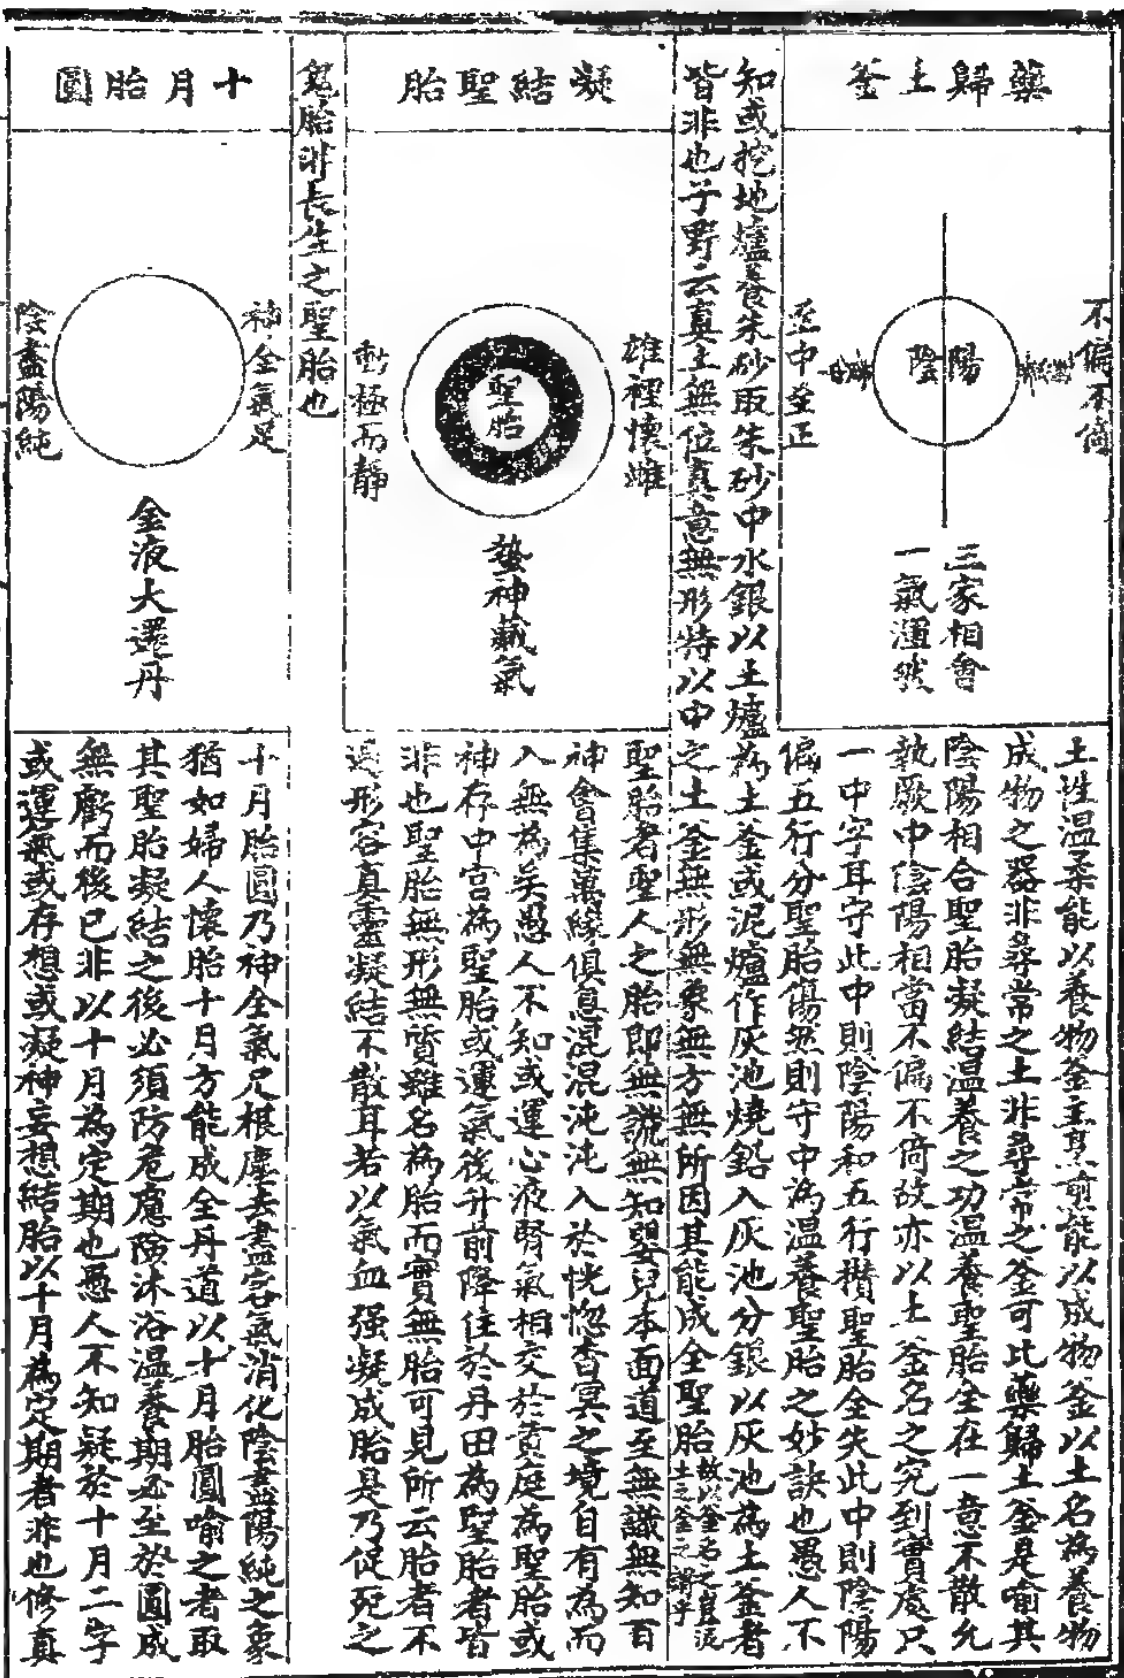 藥歸土釜
不偏不倚
陽
陰
至中至正
三家相會
一氣渾然
土性溫柔能以養物釜主烹煎能以成物釜以土名為養物
成物之器非尋常之土非尋常之釜可比藥歸土釜是喻其
陰陽相合聖胎凝結溫養之功溫養聖胎全在一意不散允
執厥中陰陽相當不偏不倚故亦以土釜名之究到實處只
一中字耳守此中則陰陽和五行攢聖胎全失此中則陰陽
偏五行分聖胎傷然則守中為溫養聖胎之妙訣也愚人不
知或挖地爐養朱砂取朱砂中水銀以土爐為土釜或泥爐作灰池燒鉛入灰池分銀以灰池為土釜者
皆非也子野云真土無位真意無形特以中之土釜無形無象無方無所因其能成全聖胎
故以釜名之豈泥
土之釜之謂乎
凝結聖胎
雄裡懷雌
聖胎
動極而靜
蟄神藏氣
聖胎者聖人之胎即無識無知嬰兒本面道至無識無知百
神會集萬緣俱息混混沌沌入於恍惚杳冥之境自有為而
入無為矣愚人不知或運心液腎氣相交於黃庭為聖胎或
神存中宮為聖胎或運氣後升前降住於丹田為聖胎者皆
非也聖胎無形無質雖名為胎而實無胎可見所云胎者不
過形容真靈凝結不散耳若以氣血强凝成胎是乃促死之
鬼胎非長生之聖胎也
十月胎圓
神全氣足
陰盡陽純
金液大還丹
十月胎圓乃神全氣足根塵去盡客氣消化陰盡陽純之象
猶如婦人懷胎十月方能成全丹道以十月胎圓喻之者取
其聖胎凝結之後必須防危慮險沐浴溫養期必至於圓成
無虧而後已非以十月為定期也愚人不知疑於十月二字
或運氣或存想或凝神妄想結胎以十月為定期者非也修真